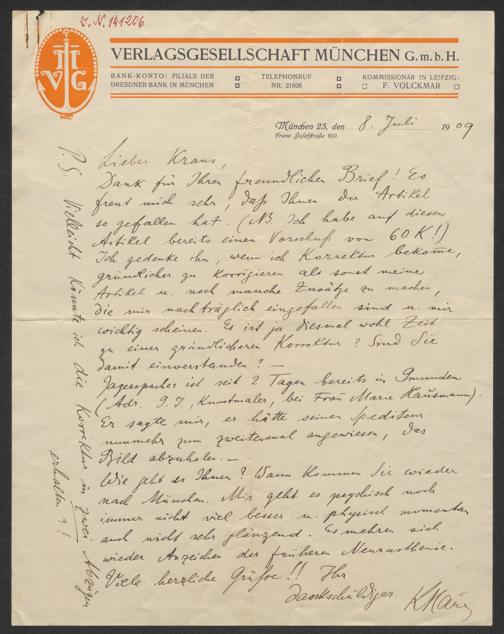 I. N. 141206
VERLAGSGESELLSCHAFT MÜNCHEN G.m.b.H.
M
VG
BANK-KONTO: FILIALE DER
DRESDNER BANK IN MÜNCHEN
TELEPHONRUF
NR. 21926
KOMMISSIONÄR IN LEIPZIG:
F. VOLCKMAR
München 23, den 8. Juli 1909
Franz Josefstraße 9/0.
Lieber Kraus,
Dank für Ihren freundlichen Brief! Es
freut mich sehr, daß Ihnen der Artikel
so gefallen hat. (NB. Ich habe auf diesen
Artikel bereits einen Vorschuß von 60 K!)
Ich gedenke ihn, wenn ich Korrektur bekomme,
gründlicher zu korrigieren als sonst meine
Artikel u. noch manche Zusätze zu machen,
die mir nachträglich eingefallen sind u. mir
wichtig scheinen. Es ist ja diesmal wohl Zeit
zu einer gründlicheren Korrektur? Sind Sie
damit einverstanden? —
Jagerspacher ist seit 2 Tagen bereits in Gmunden
(Adr. G. J., Kunstmaler, bei Frau Marie Hausmann).
Er sagte mir, er hätte seinen Spediteur
nunmehr zum zweitenmal angewiesen, das
Bild abzuholen. —
Wie geht es Ihnen? Wann kommen Sie wieder
nach München. Mir geht es psychisch noch
immer nicht viel besser u. physisch momentan
auch nicht sehr glänzend. Es mehren sich
wieder Anzeichen der früheren Neurasthenie.
Viele herzliche Grüße!! Ihr
dankschuldiger
P.S. Vielleicht könnte ich die Korrektur in zwei Abzügen
erhalten?!